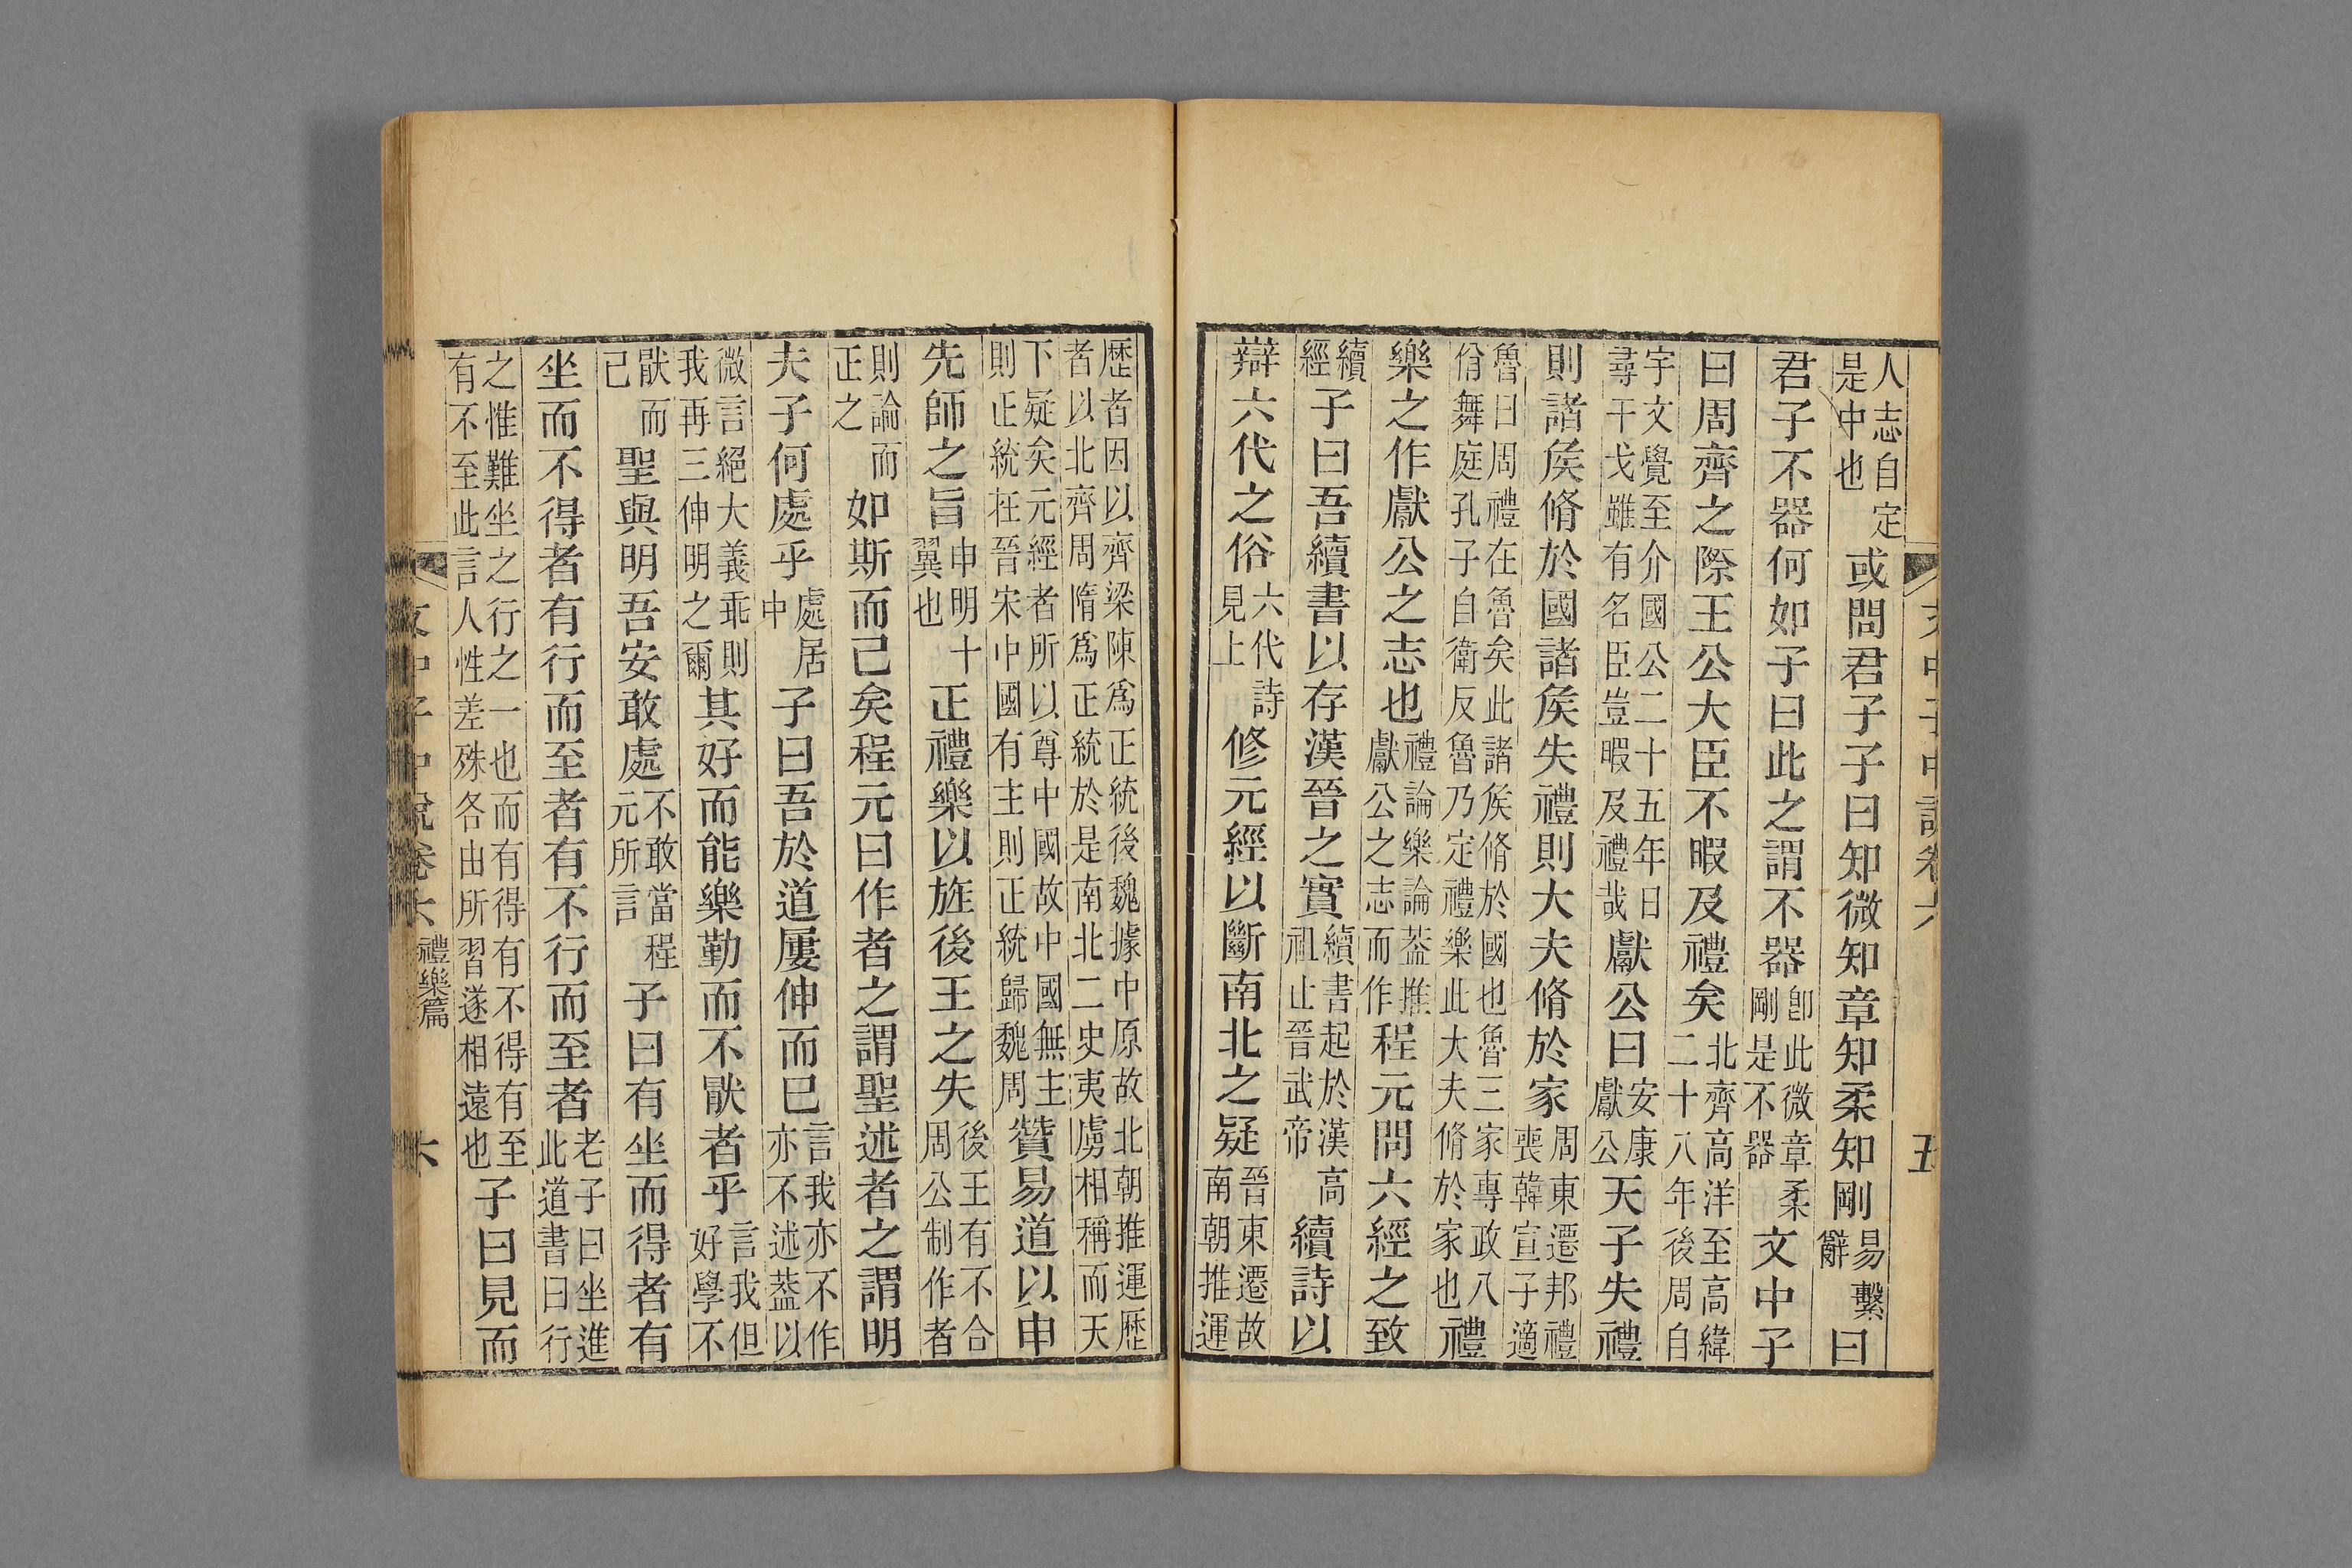 文中子中說卷六 五
人志自定是中也或問君子子曰知微知章知柔知剛易繫辭曰
君子不器何如子曰此之謂不器卽此微章柔剛是不器文中子
曰周齊之際王公大臣不暇及禮矣北齊高洋至高緯二十八年後周自
宇文覺至介國公二十五年日尋干戈雖有名臣豈暇及禮哉獻公曰安康獻公天子失禮
則諸矦脩於國諸矦失禮則大夫脩於家周東遷邦禮喪韓宣子適
魯曰周禮在魯矣此諸矦脩於國也魯三家專政八佾舞庭孔子自衛反魯乃定禮樂此大夫脩於家也禮
樂之作獻公之志也禮論樂論葢推獻公之志而作程元問六經之致
續經子曰吾續書以存漢晉之實續書起於漢高祖止晉武帝續詩以
辯六代之俗六代詩見上修元經以斷南北之疑晉東遷故南朝推運
歷者因以齊梁陳爲正統後魏據中原故北朝推運歷者以北齊周隋爲正統於是南北二史夷虜相稱而天
下疑矣元經者所以尊中國故中國無主則正統在晉宋中國有主則正統歸魏周贊易道以申
先師之旨申明十翼也正禮樂以旌後王之失後王有不合周公制作者
則論而正之如斯而已矣程元曰作者之謂聖述者之謂明
夫子何處乎處居中子曰吾於道屢伸而已言我亦不作亦不述葢以
微言絕大義乖則我再三伸明之爾其好而能樂勤而不猒者乎言我但好學不
猒而已聖與明吾安敢處不敢當程元所言子曰有坐而得者有
坐而不得者有行而至者有不行而至者老子曰坐進此道書曰行
之惟難坐之行之一也而有得有不得有至有不至此言人性差殊各由所習遂相遠也子曰見而
文中子中說卷六 禮樂篇 六